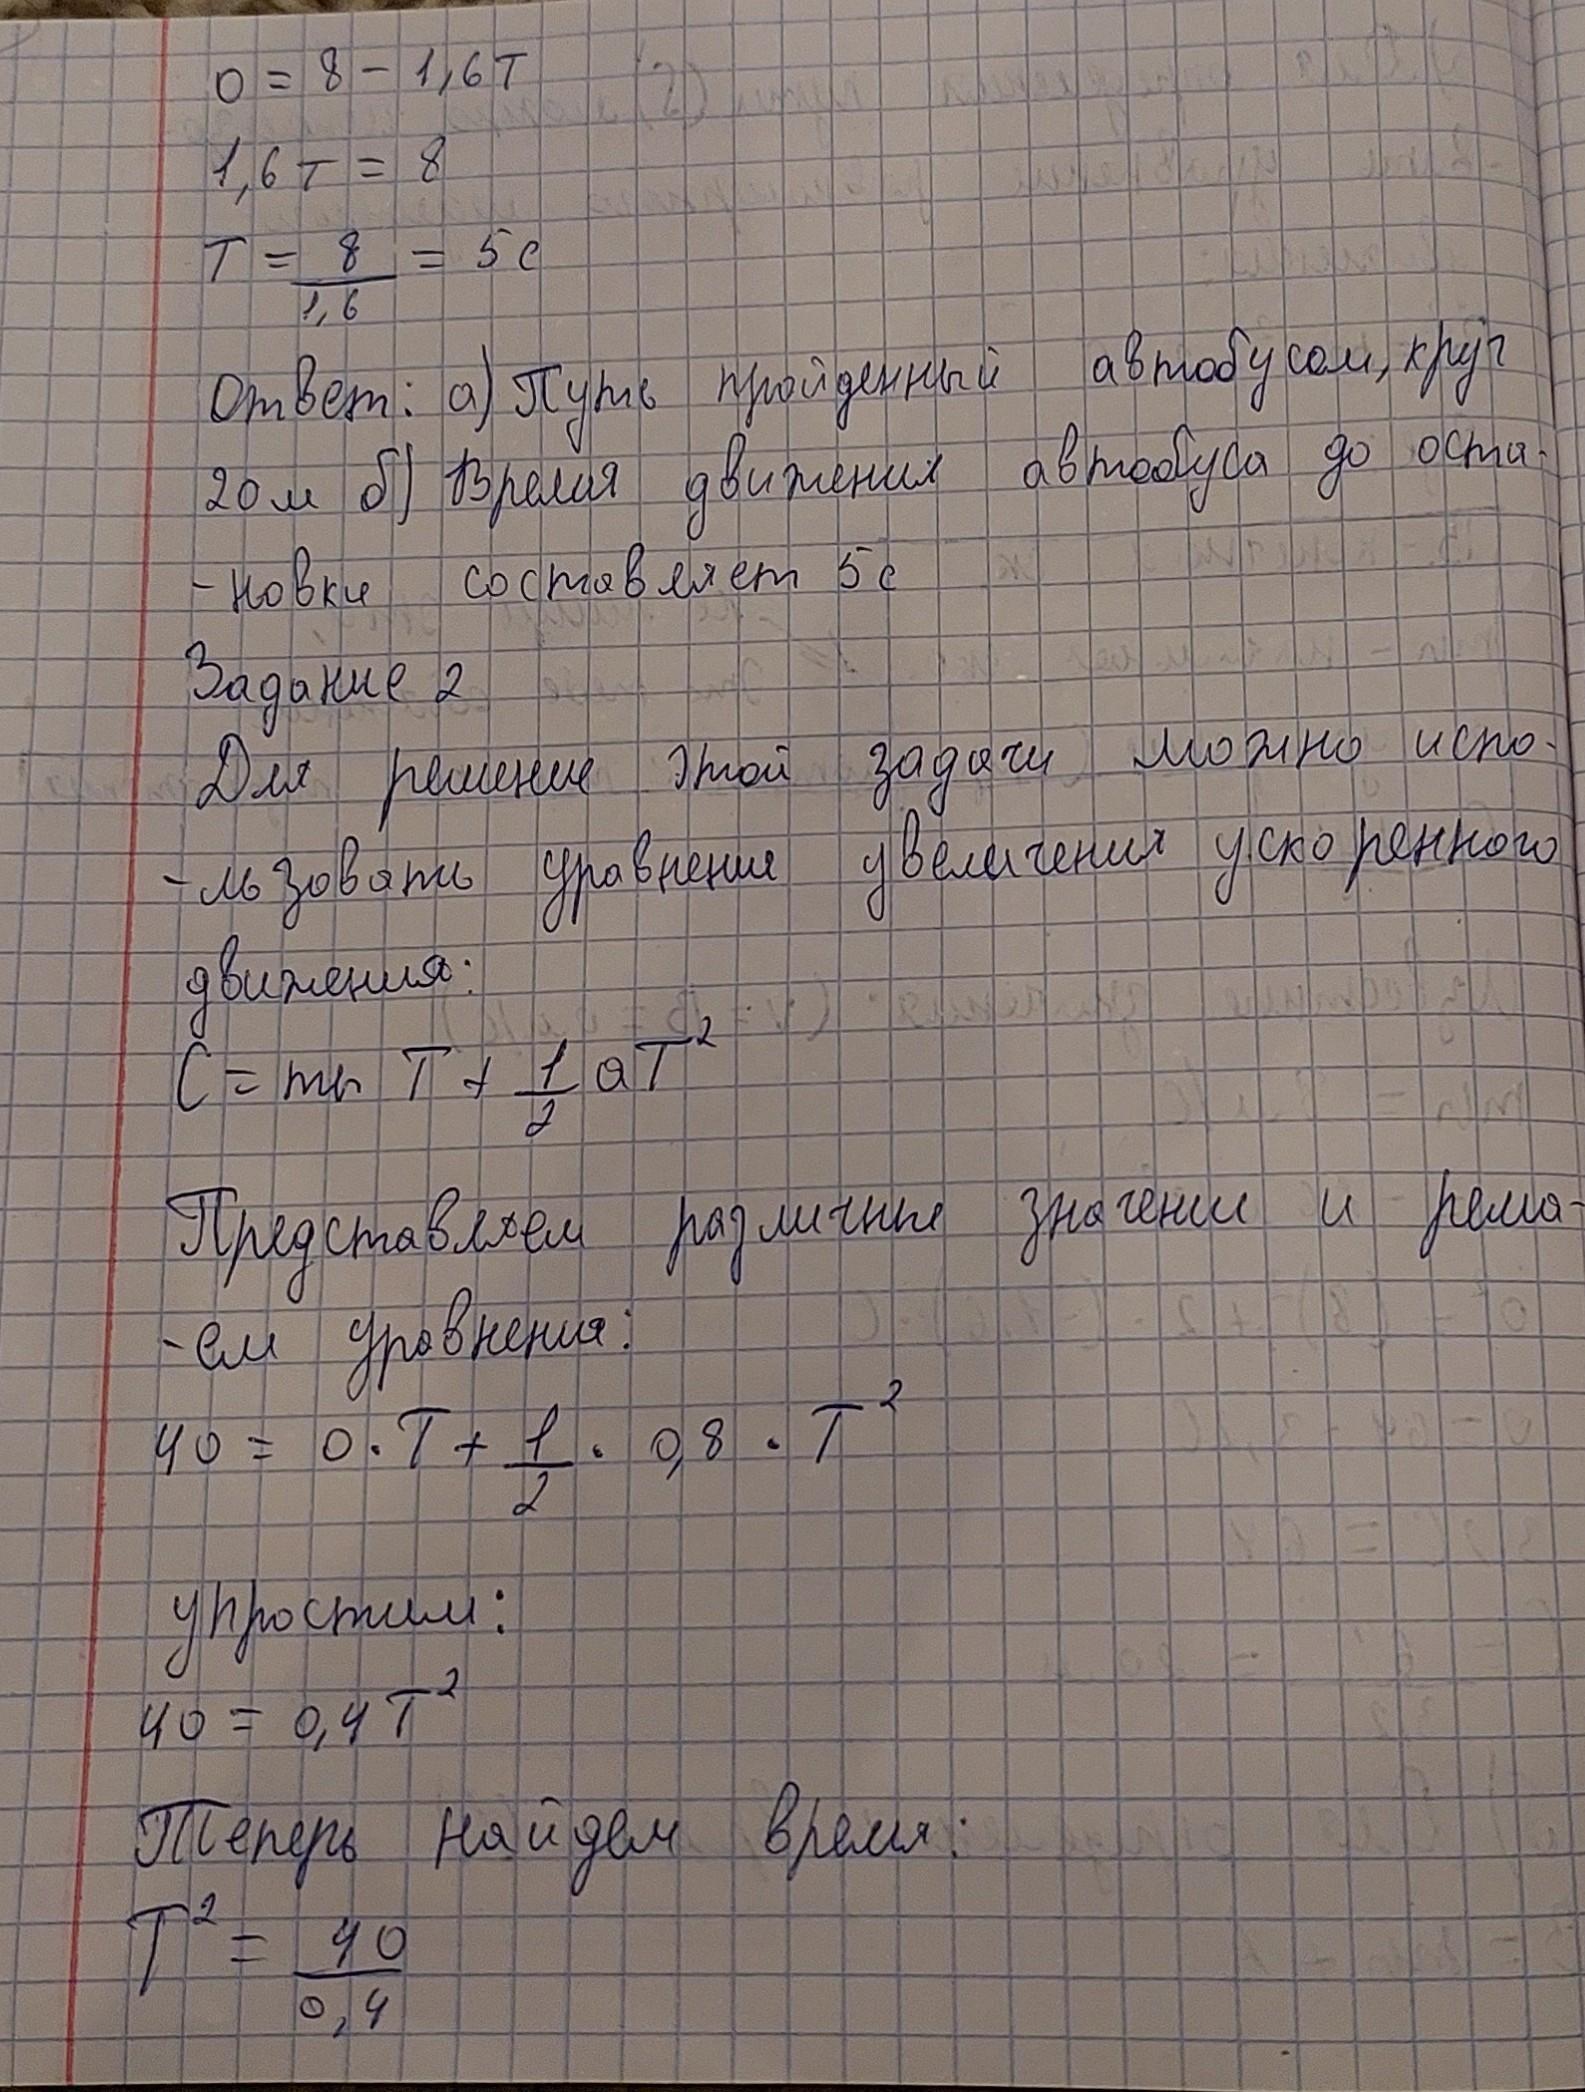 0 = 8 - 1,6T
1,6T = 8
T = 8/1,6 = 5с
Ответ: а) Путь пройденный автобусом, круг
20м б) Время движения автобуса до оста-
-новки составляет 5с
Задание 2
Для решение этой задачи можно испо-
-льзовать уравнения увеличения ускоренного
движения:
С = ты T + 1/2 aT²
Представляем различные значении и реша-
-ем уравнения:
40 = 0·T + 1/2 · 0,8 · T²
упростим:
40 = 0,4T²
Теперь найдем время:
T² = 40/0,4